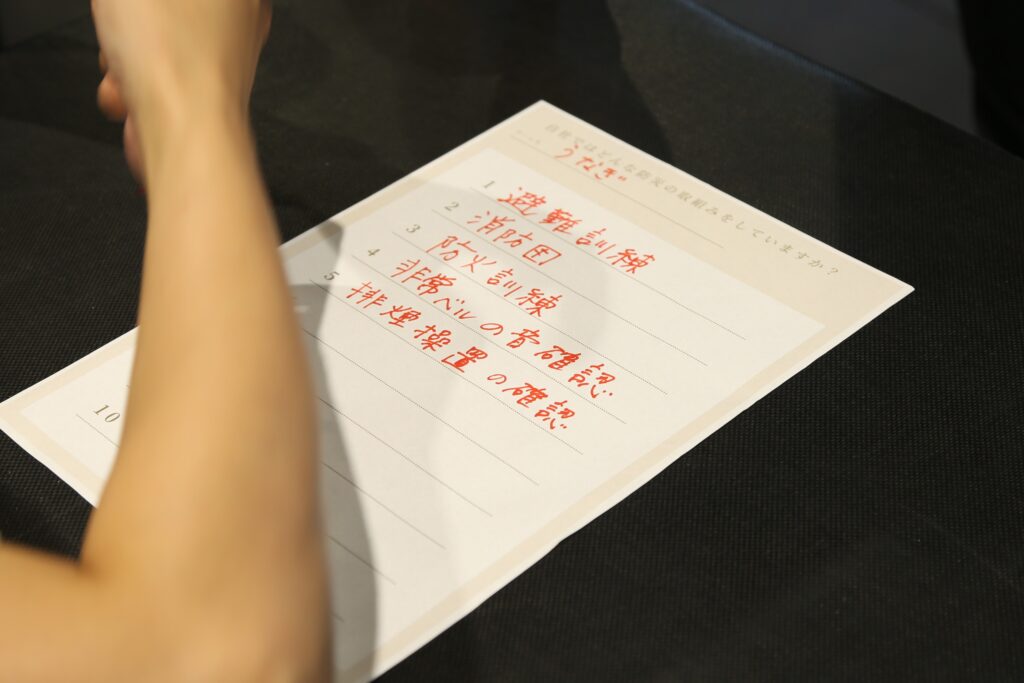 自社ではどんな防災の取組みをしていますか？
うなぎ
1 避難訓練
2 消防団
3 防火訓練
4 非常ベルの音確認
5 排煙操置の確認
10